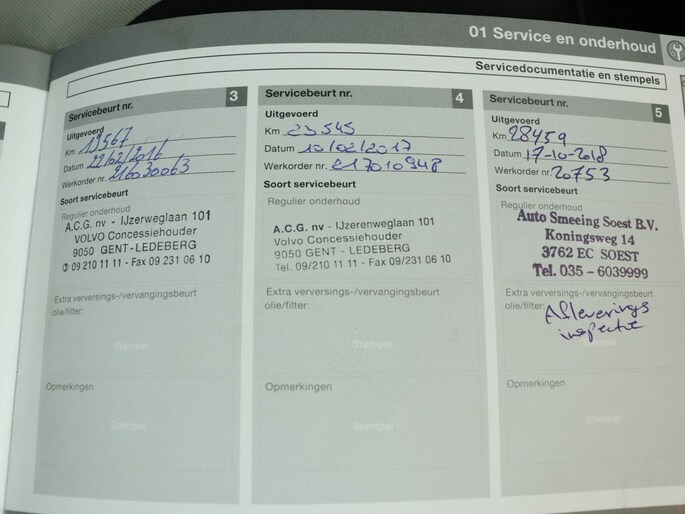 01 Service en onderhoud
Servicedocumentatie en stempels
Servicebeurt nr. 3
Uitgevoerd
Km 19567
Datum 22/02/2016
Werkorder nr. 216030063
Soort servicebeurt
Regulier onderhoud
A.C.G. nv - IJzerweglaan 101
VOLVO Concessiehouder
9050 GENT-LEDEBERG
✆ 09 210 11 11 - Fax 09 231 06 10
Extra verversings-/vervangingsbeurt
olie/filter:
Stempel
Opmerkingen
Stempel
Servicebeurt nr. 4
Uitgevoerd
Km 23545
Datum 10/02/2017
Werkorder nr. 217010948
Soort servicebeurt
Regulier onderhoud
A.C.G. nv - IJzerenweglaan 101
Volvo Concessiehouder
9050 GENT - LEDEBERG
Tel. 09/210 11 11 - Fax 09/231 06 10
Extra verversings-/vervangingsbeurt
olie/filter:
Stempel
Opmerkingen
Stempel
Servicebeurt nr. 5
Uitgevoerd
Km 28459
Datum 17-10-2018
Werkorder nr. 20753
Soort servicebeurt
Regulier onderhoud
Auto Smeeing Soest B.V.
Koningsweg 14
3762 EC SOEST
Tel. 035 - 6039999
Extra verversings-/vervangingsbeurt
olie/filter: Afleverings
inspectie
Stempel
Opmerkingen
Stempel